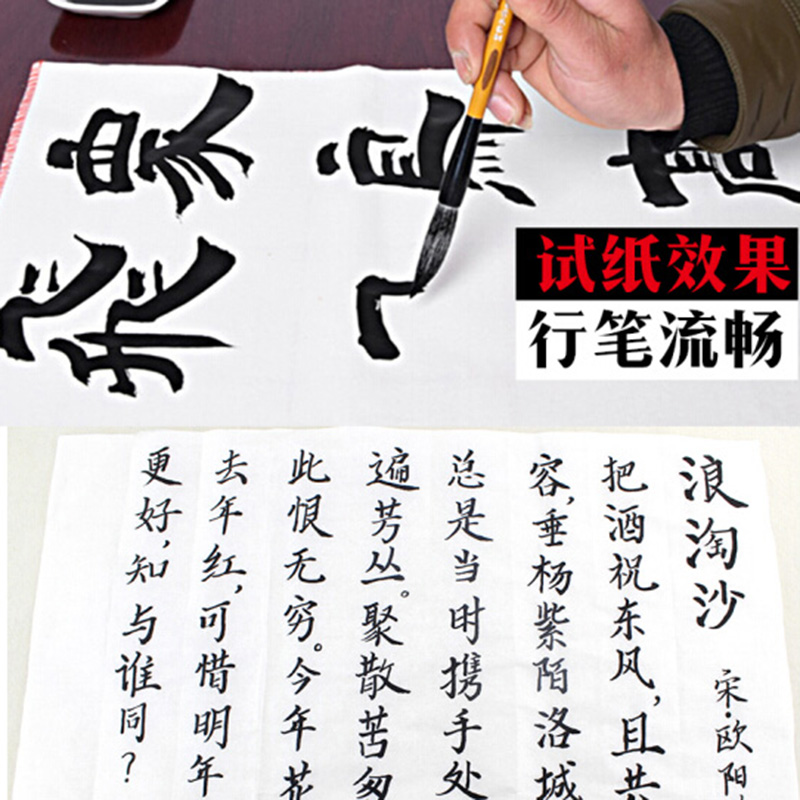 试纸效果
行笔流畅
浪淘沙 宋·欧阳
把酒祝东风，且共
容，垂杨紫陌洛城
总是当时携手处
遍芳丛。聚散苦匆
此恨无穷。今年花
去年红，可惜明年
更好，知与谁同？